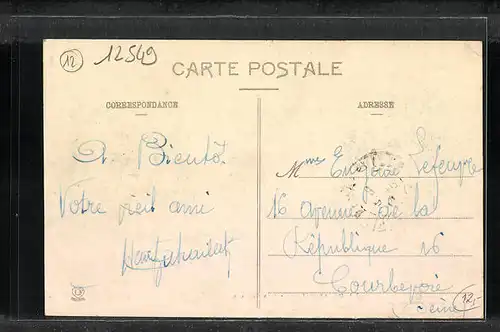 12
12549
CARTE POSTALE
CORRESPONDANCE
ADRESSE
A Bientôt
Votre vieil ami
Mme Eugène Lefeuvre
16 avenue de la
République 16
Courbevoie
Seine
12,-